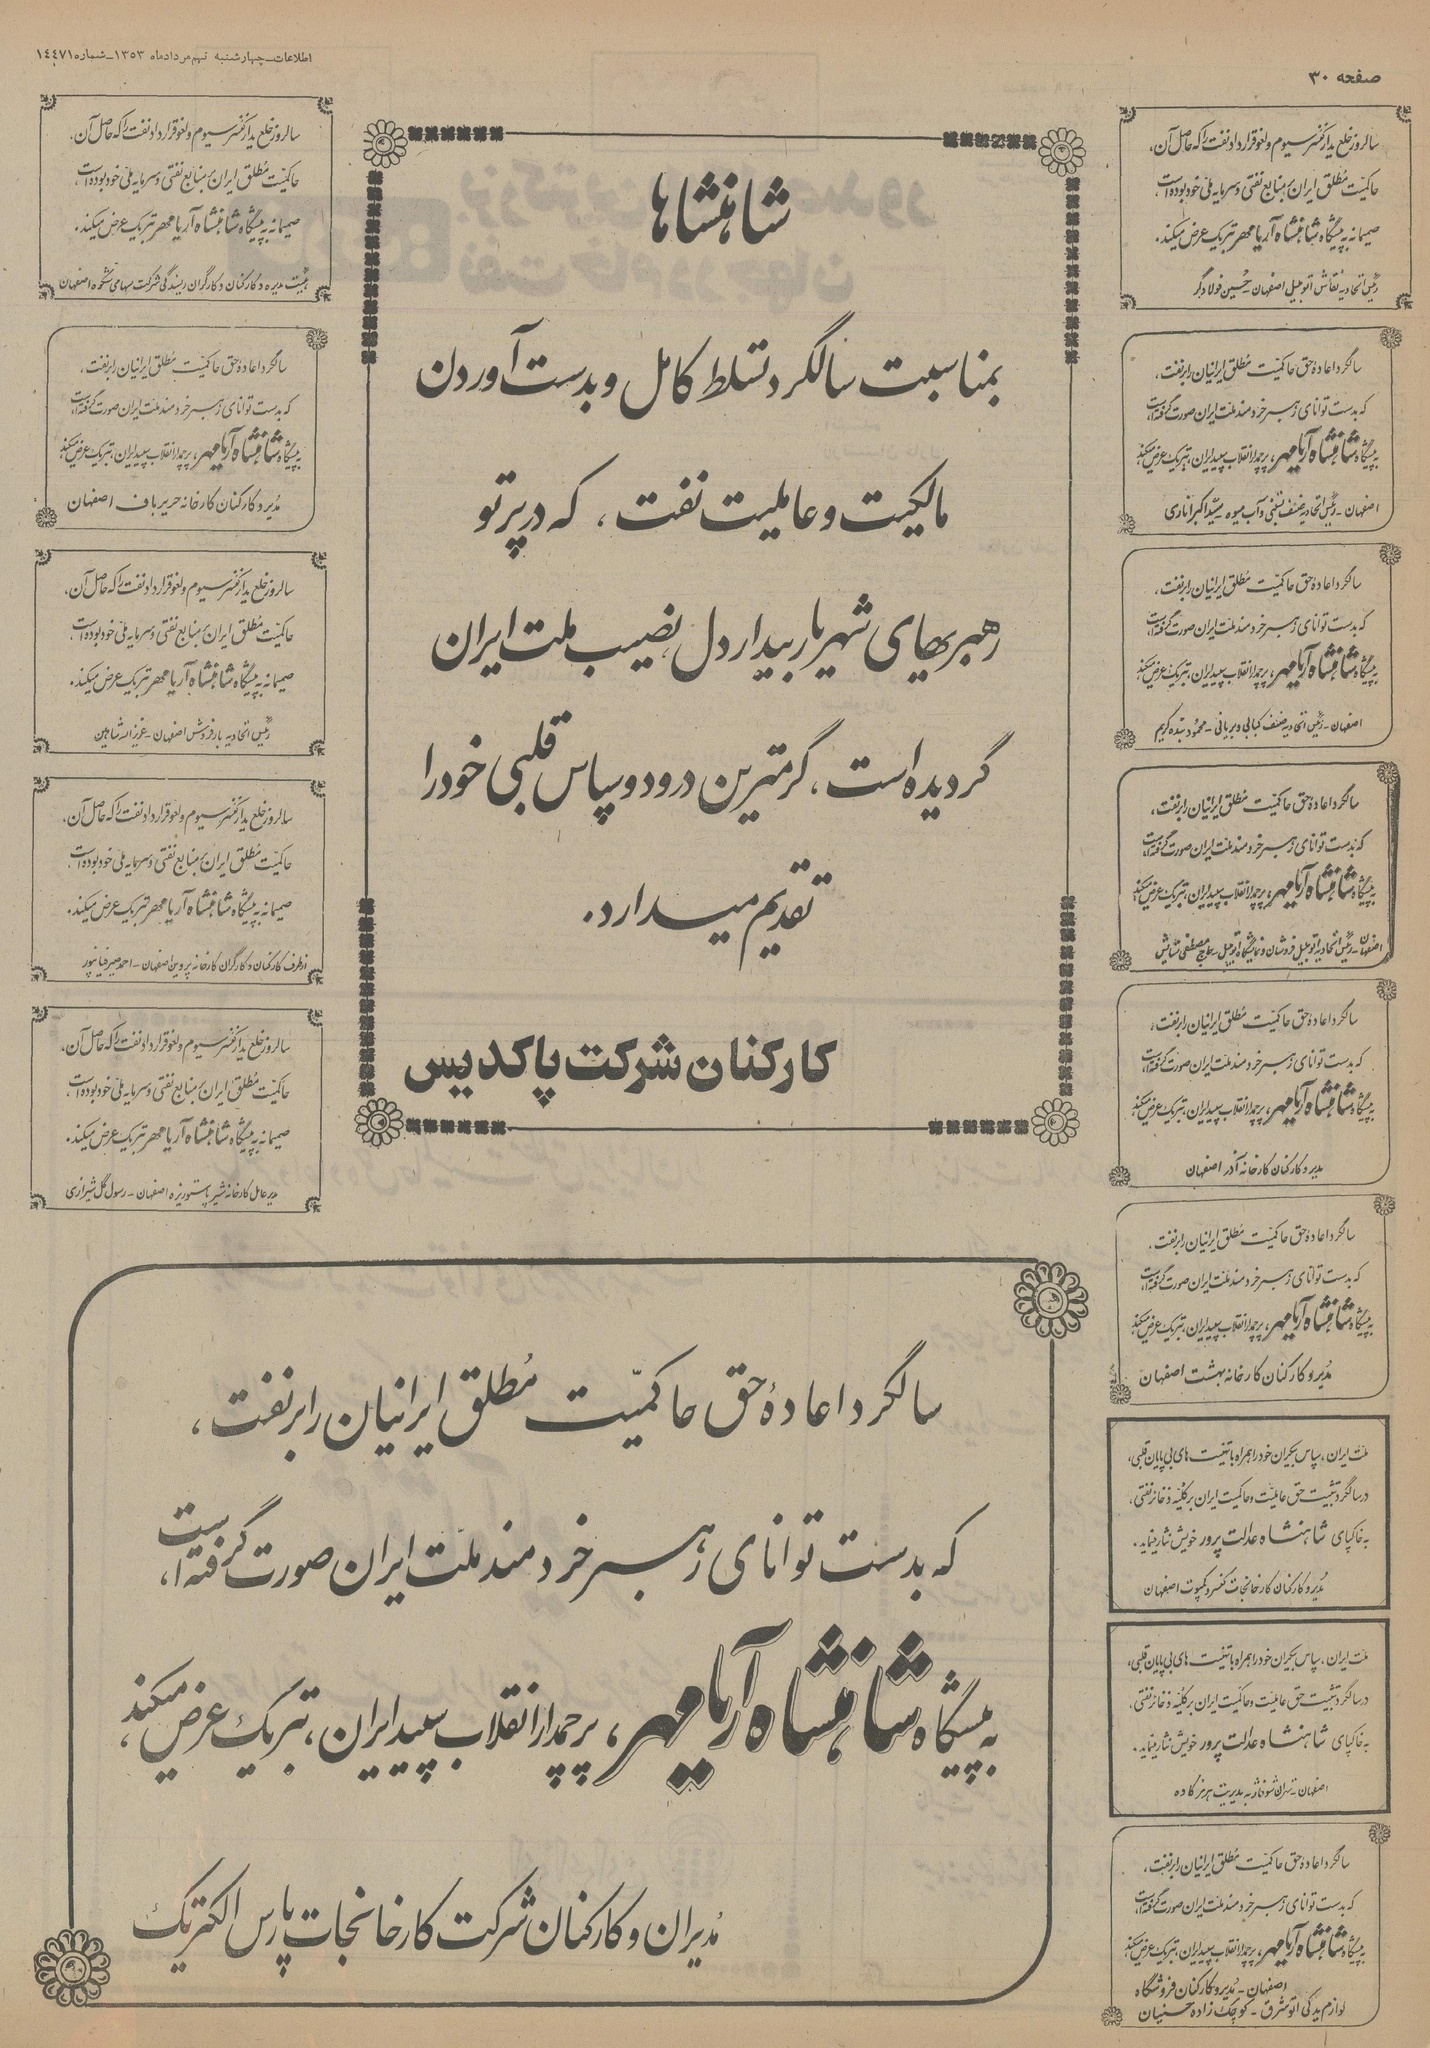 صفحه ۳۰
اطلاعات_چهارشنبه نهم مردادماه ۱۳۵۳_شماره ۱٤٤٧۱
شاهنشاها
بمناسبت سالگرد تسلط کامل و بدست آوردن
مالکیت و عاملیت نفت ، که در پرتو
رهبریهای شهریار بیدار دل نصیب ملت ایران
گردیده است ، گرمترین درود و سپاس قلبی خود را
تقدیم میدارد .
کارکنان شرکت پاکدیس
سالروز خلع ید از کنسرسیوم و لغو قرارداد نفت را که حاصل آن،
حاکمیّت مُطلق ایران بر منابع نفتی و سرمایه ملی خود بوده است،
صمیمانه به پیشگاه شاهنشاه آریامهر تبریک عرض میکند.
رئیس اتحادیه نقاش اتومبیل اصفهان - حسین فولادگر
سالگرد اعاده حق حاکمیّت مُطلق ایرانیان را بر نفت،
که بدست توانای رهبر خردمند ملت ایران صورت گرفته است،
به پیشگاه شاهنشاه آریامهر، پرچمدار انقلاب سپید ایران، تبریک عرض میکند
اصفهان - رئیس اتحادیه صنف بستنی و آب میوه - سید اکبر اناری
سالگرد اعاده حق حاکمیّت مُطلق ایرانیان را بر نفت،
که بدست توانای رهبر خردمند ملت ایران صورت گرفته است،
به پیشگاه شاهنشاه آریامهر، پرچمدار انقلاب سپید ایران، تبریک عرض میکند
اصفهان - رئیس اتحادیه صنف کبابی و بریانی - محمود
سالگرد اعاده حق حاکمیّت مُطلق ایرانیان را بر نفت،
که بدست توانای رهبر خردمند ملت ایران صورت گرفته است،
به پیشگاه شاهنشاه آریامهر، پرچمدار انقلاب سپید ایران، تبریک عرض میکند
اصفهان - رئیس اتحادیه اتومبیل فروشان و نمایشگاه اتومبیل - حاج مصطفی
سالگرد اعاده حق حاکمیّت مُطلق ایرانیان را بر نفت،
که بدست توانای رهبر خردمند ملت ایران صورت گرفته است،
به پیشگاه شاهنشاه آریامهر، پرچمدار انقلاب سپید ایران، تبریک عرض میکند
مدیر و کارکنان کارخانه آذر اصفهان
سالگرد اعاده حق حاکمیّت مُطلق ایرانیان را بر نفت،
که بدست توانای رهبر خردمند ملت ایران صورت گرفته است،
به پیشگاه شاهنشاه آریامهر، پرچمدار انقلاب سپید ایران، تبریک عرض میکند
مُدیر و کارکنان کارخانه بهشت اصفهان
ملت ایران، سپاس بیکران خود را همراه با تهنیت های بی پایان قلبی،
در سالگرد تثبیت حق عاملیت و حاکمیت ایران بر کلیّه ذخائر نفتی،
به خاکپای شاهنشاه عدالت پرور خویش نثار مینماید.
مُدیر و کارکنان کارخانجات کنسرو کمپوت اصفهان
ملت ایران، سپاس بیکران خود را همراه با تهنیت های بی پایان قلبی،
در سالگرد تثبیت حق عاملیت و حاکمیت ایران بر کلیّه ذخائر نفتی،
به خاکپای شاهنشاه عدالت پرور خویش نثار مینماید.
اصفهان - تهران شوفاژ به مدیریت
سالگرد اعاده حق حاکمیّت مُطلق ایرانیان را بر نفت،
که بدست توانای رهبر خردمند ملت ایران صورت گرفته است،
به پیشگاه شاهنشاه آریامهر، پرچمدار انقلاب سپید ایران، تبریک عرض میکند
اصفهان - مُدیر و کارکنان فروشگاه
لوازم یدکی اتوشرق - کوچک زاده حسنیان
سالروز خلع ید از کنسرسیوم و لغو قرارداد نفت را که حاصل آن،
حاکمیّت مُطلق ایران بر منابع نفتی و سرمایه ملی خود بوده است،
صمیمانه به پیشگاه شاهنشاه آریامهر تبریک عرض میکند.
هیئت مدیره و کارکنان و کارگران ریسندگی شرکت سهامی شکوه اصفهان
سالگرد اعاده حق حاکمیّت مُطلق ایرانیان را بر نفت،
که بدست توانای رهبر خردمند ملت ایران صورت گرفته است،
به پیشگاه شاهنشاه آریامهر، پرچمدار انقلاب سپید ایران، تبریک عرض میکند
مُدیر و کارکنان کارخانه حریر باف اصفهان
سالروز خلع ید از کنسرسیوم و لغو قرارداد نفت را که حاصل آن،
حاکمیّت مُطلق ایران بر منابع نفتی و سرمایه ملی خود بوده است،
صمیمانه به پیشگاه شاهنشاه آریامهر تبریک عرض میکند.
رئیس اتحادیه بار فروش اصفهان - عزیزاله شاهین
سالروز خلع ید از کنسرسیوم و لغو قرارداد نفت را که حاصل آن،
حاکمیّت مُطلق ایران بر منابع نفتی و سرمایه ملی خود بوده است،
صمیمانه به پیشگاه شاهنشاه آریامهر تبریک عرض میکند.
از طرف کارکنان و کارگران کارخانه پروین اصفهان - احمد
سالروز خلع ید از کنسرسیوم و لغو قرارداد نفت را که حاصل آن،
حاکمیّت مُطلق ایران بر منابع نفتی و سرمایه ملی خود بوده است،
صمیمانه به پیشگاه شاهنشاه آریامهر تبریک عرض میکند.
مدیر عامل کارخانه شیر پاستوریزه اصفهان - رسول گل شیرازی
سالگرد اعادهٔ حق حاکمیّت مُطلق ایرانیان را بر نفت ،
که بدست توانای رهبر خردمند ملّت ایران صورت گرفته است،
به پیشگاه شاهنشاه آریامهر ، پرچمدار انقلاب سپید ایران ، تبریک عرض میکند ،
مُدیران و کارکنان شرکت کارخانجات پارس الکتریک